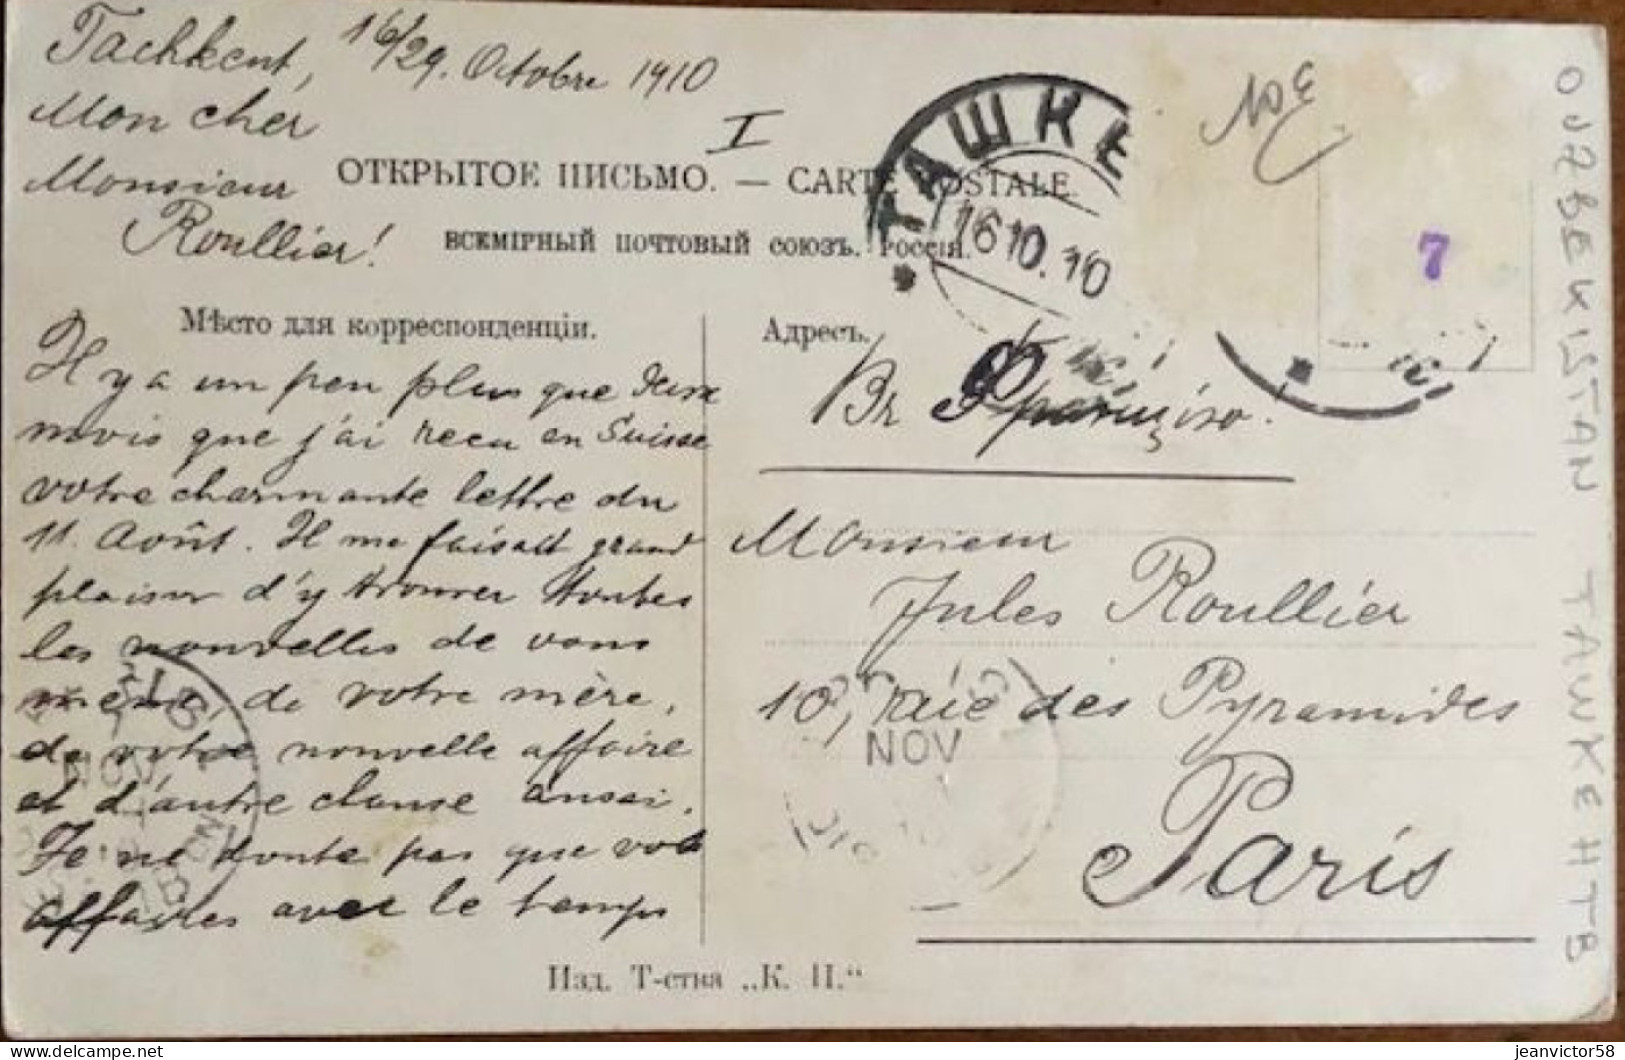 Tachkent, 16/29. Octobre 1910
Mon cher
Monsieur
Roullier!
I
ОТКРЫТОЕ ПИСЬМО. — CARTE POSTALE.
ВСЕМІРНЫЙ ПОЧТОВЫЙ СОЮЗЪ. РОССІЯ.
ТАШКЕ
16 10. 10
7
Мѣсто для корреспонденціи.
Il y a un peu plus que deux
mois que j'ai recu en Suisse
votre charmante lettre du
11. Août. Il me faisait grand
plaisir d'y trouver toutes
les nouvelles de vous
même, de votre mère,
de votre nouvelle affaire
et d'autre chause aussi.
Je ne doute pas que vos
affaires avec le temps
Адресъ.
Monsieur
Jules Roullier
10, rue des Pyramides
NOV
Paris
Изд. Т-ства „К. П.“
OUZBEKISTAN TAWKEHTB
jeanvictor58